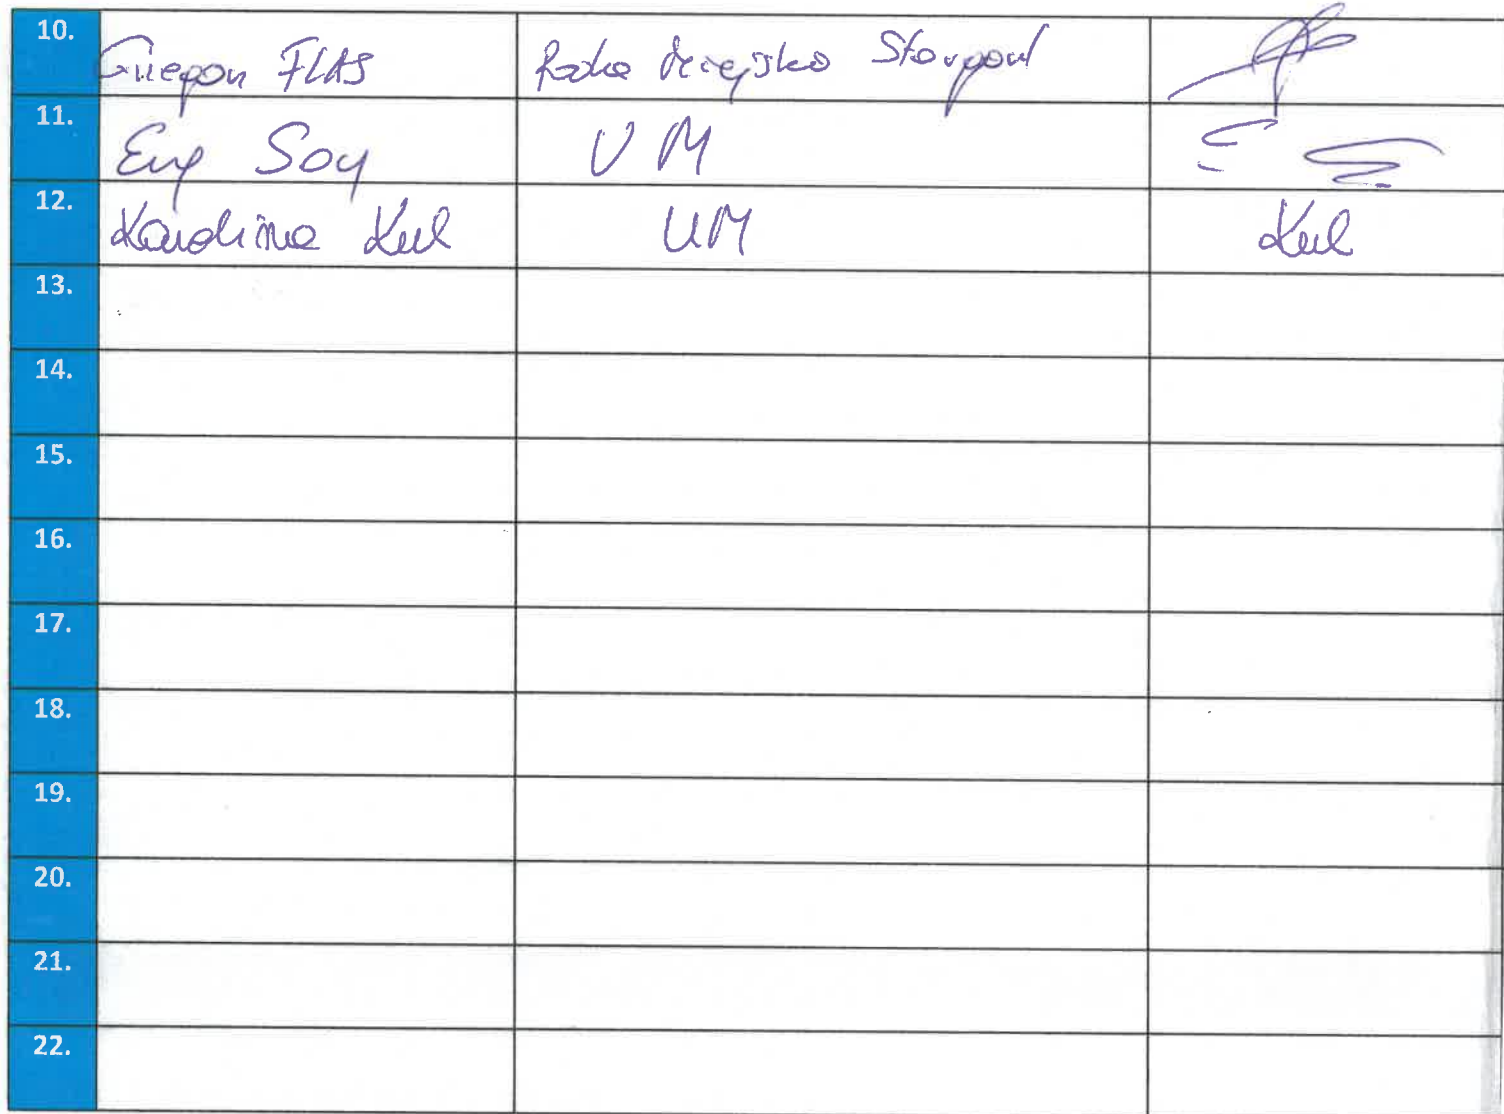 10. Grzegorz FLAS Rada Miejska Stargard
11. Soy UM
12. Karolina Kul UM Kul
13.
14.
15.
16.
17.
18.
19.
20.
21.
22.